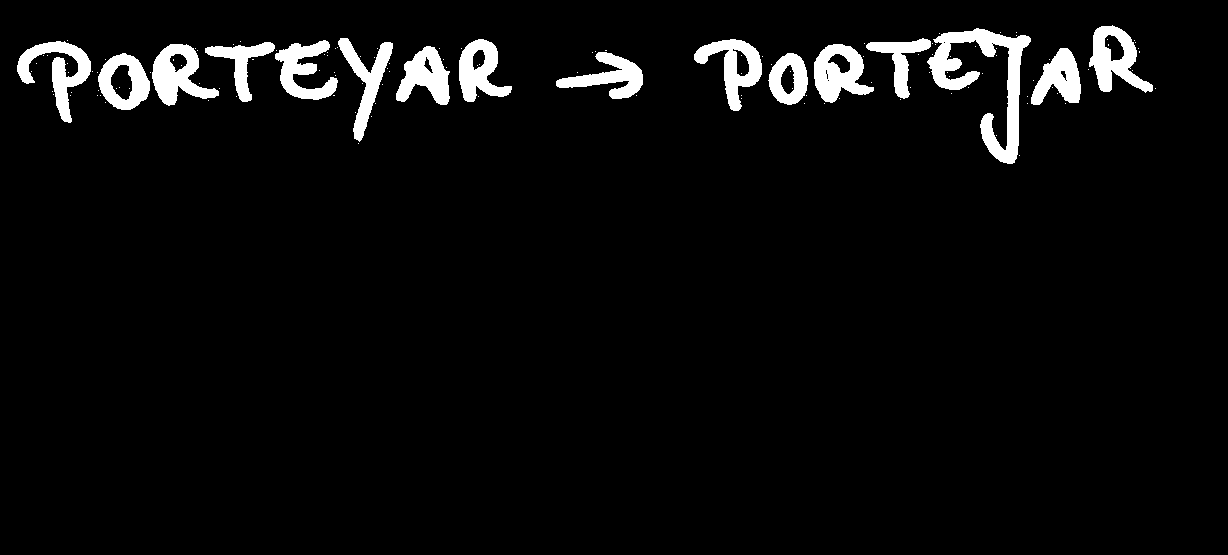 PORTEYAR → PORTEJAR